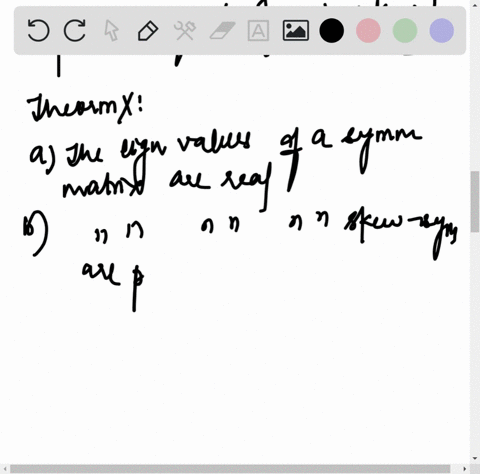 Theorm X:
a) The eign values of a symm
matrix are real
b) " " " " " " skew-sym
are p